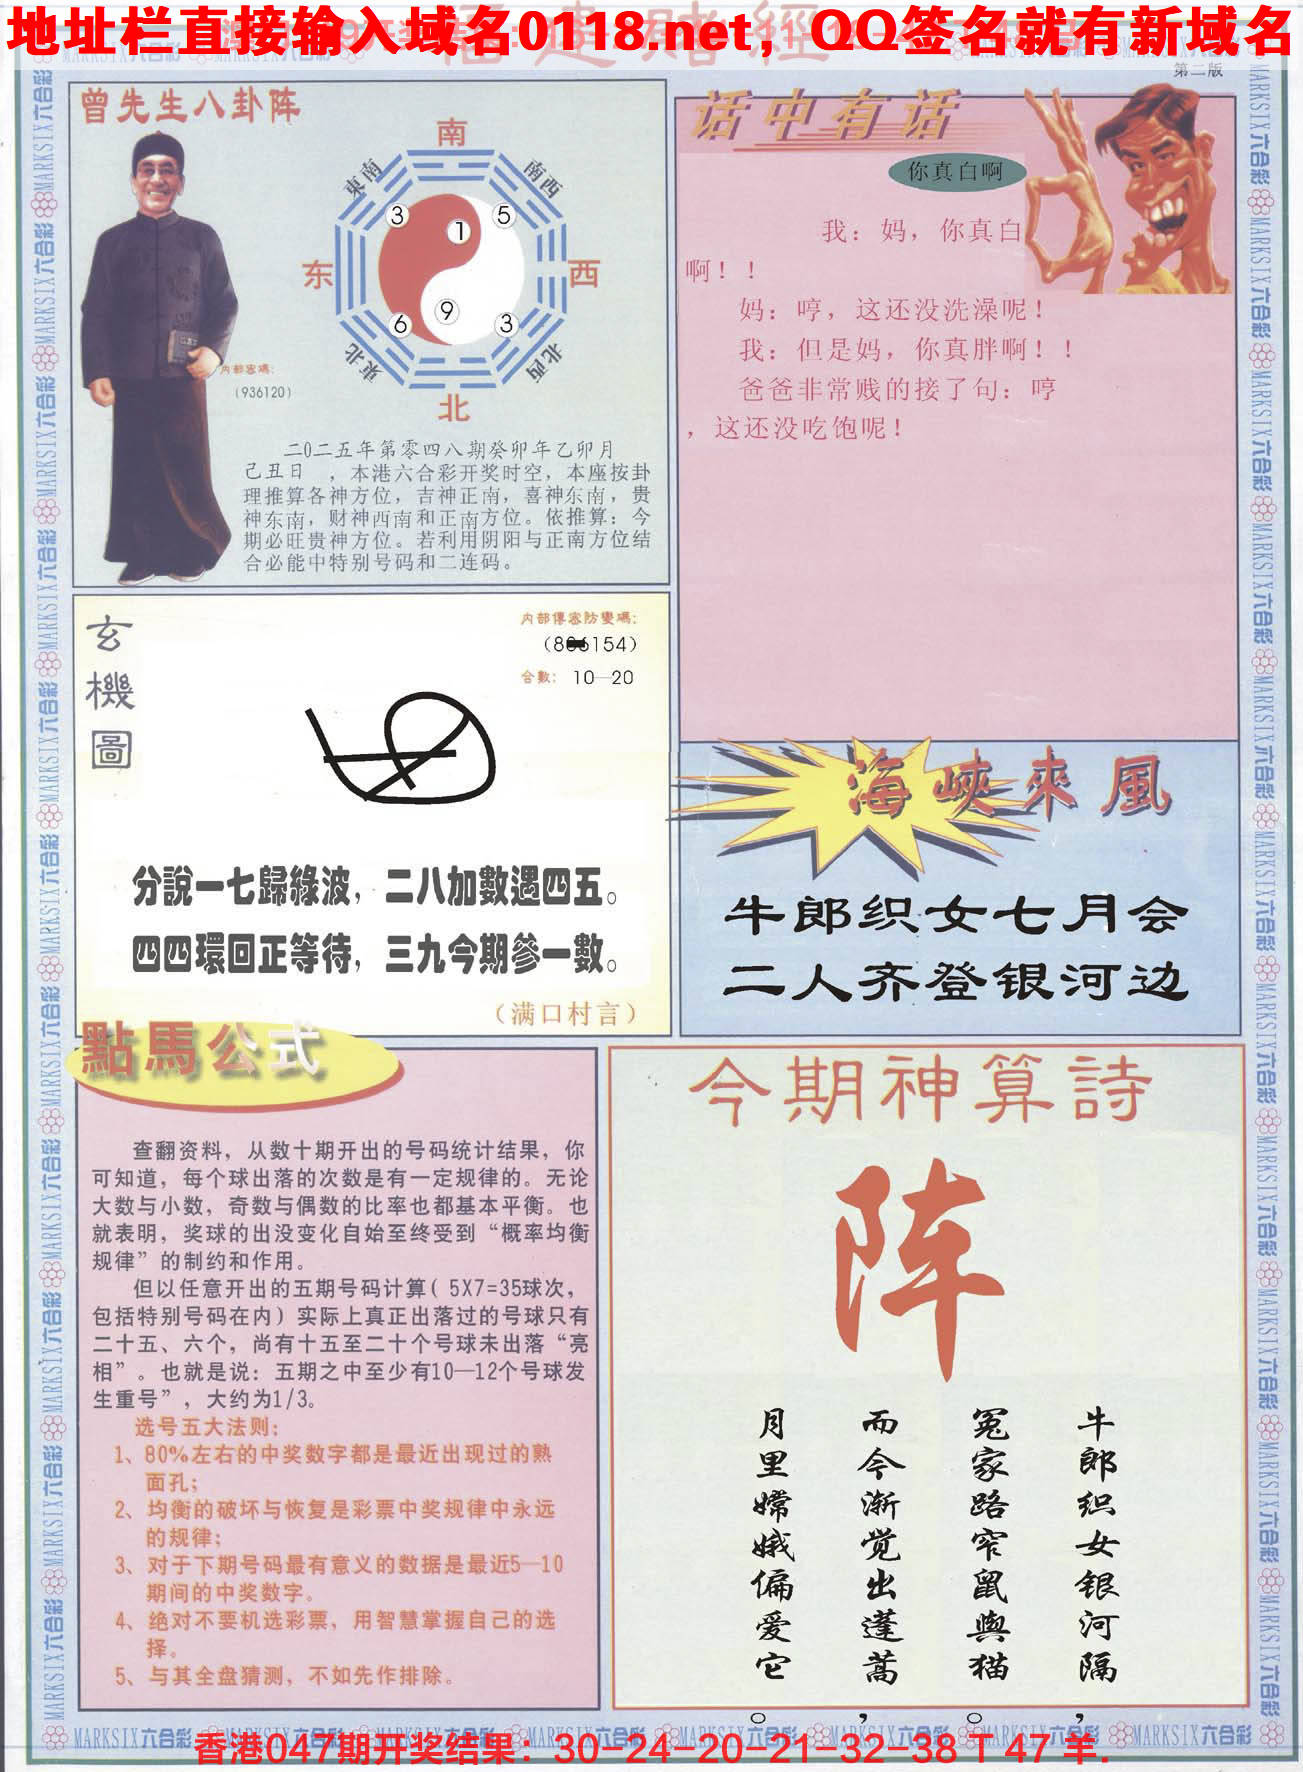 地址栏直接输入域名0118.net，QQ签名就有新域名
福建赌經
第二版
曾先生八卦阵
南
東南
南西
3
5
1
东
西
9
6
3
東北
北西
北
内部密碼：
（936120）
二0二五年第零四八期癸卯年乙卯月
己丑日　，本港六合彩开奖时空，本座按卦
理推算各神方位，吉神正南，喜神东南，贵
神东南，财神西南和正南方位。依推算：今
期必旺贵神方位。若利用阴阳与正南方位结
合必能中特别号码和二连码。
话中有话
你真白啊
我：妈，你真白
啊！！
妈：哼，这还没洗澡呢！
我：但是妈，你真胖啊！！
爸爸非常贱的接了句：哼
，这还没吃饱呢！
玄機圖
内部傳密防變碼：
154）
合數：10—20
分說一七歸綠波，二八加數遇四五。
四四環回正等待，三九今期參一數。
（满口村言）
海峽來風
牛郎织女七月会
二人齐登银河边
點馬公式
查翻资料，从数十期开出的号码统计结果，你
可知道，每个球出落的次数是有一定规律的。无论
大数与小数，奇数与偶数的比率也都基本平衡。也
就表明，奖球的出没变化自始至终受到“概率均衡
规律”的制约和作用。
但以任意开出的五期号码计算（5X7=35球次，
包括特别号码在内）实际上真正出落过的号球只有
二十五、六个，尚有十五至二十个号球未出落“亮
相”。也就是说：五期之中至少有10—12个号球发
生重号”，大约为1/3。
选号五大法则：
1、80%左右的中奖数字都是最近出现过的熟
面孔；
2、均衡的破坏与恢复是彩票中奖规律中永远
的规律；
3、对于下期号码最有意义的数据是最近5—10
期间的中奖数字。
4、绝对不要机选彩票，用智慧掌握自己的选
择。
5、与其全盘猜测，不如先作排除。
今期神算詩
阵
牛郎织女银河隔，
冤家路窄鼠舆猫。
而今渐觉出蓬蒿，
月里嫦娥偏爱它。
MARKSIX六合彩
香港047期开奖结果：30-24-20-21-32-38 T 47 羊.